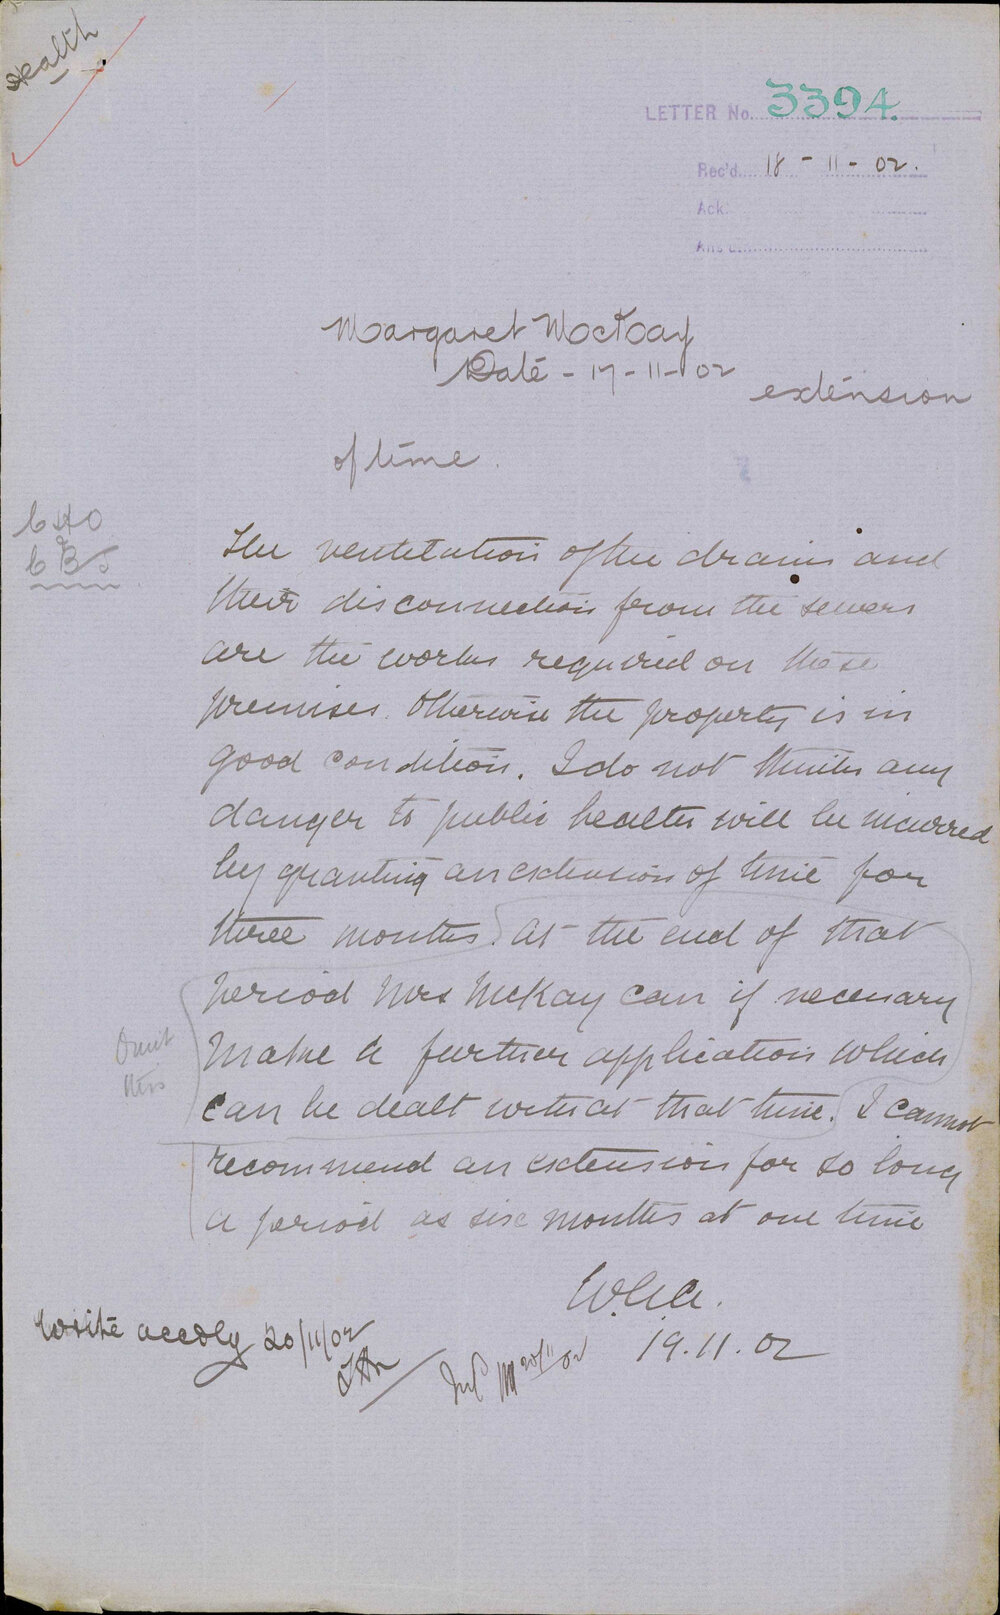 Health
LETTER No. 3394.
Rec'd. 18 - 11 - 02.
Ack.
Ans'd.
Margaret McKay
Date - 17-11-02
extension
of time.
CHO
The ventilation of the drains and
their disconnection from the sewers
are the works required on these
premises. Otherwise the property is in
good condition. I do not think any
danger to public health will be incurred
by granting an extension of time for
three months. At the end of that
period Mrs McKay can if necessary
Omit
this
make a further application which
can be dealt with at that time. I cannot
recommend an extension for so long
a period as six months at one time
19.11.02
Write accdly 20/11/02
20/11/02